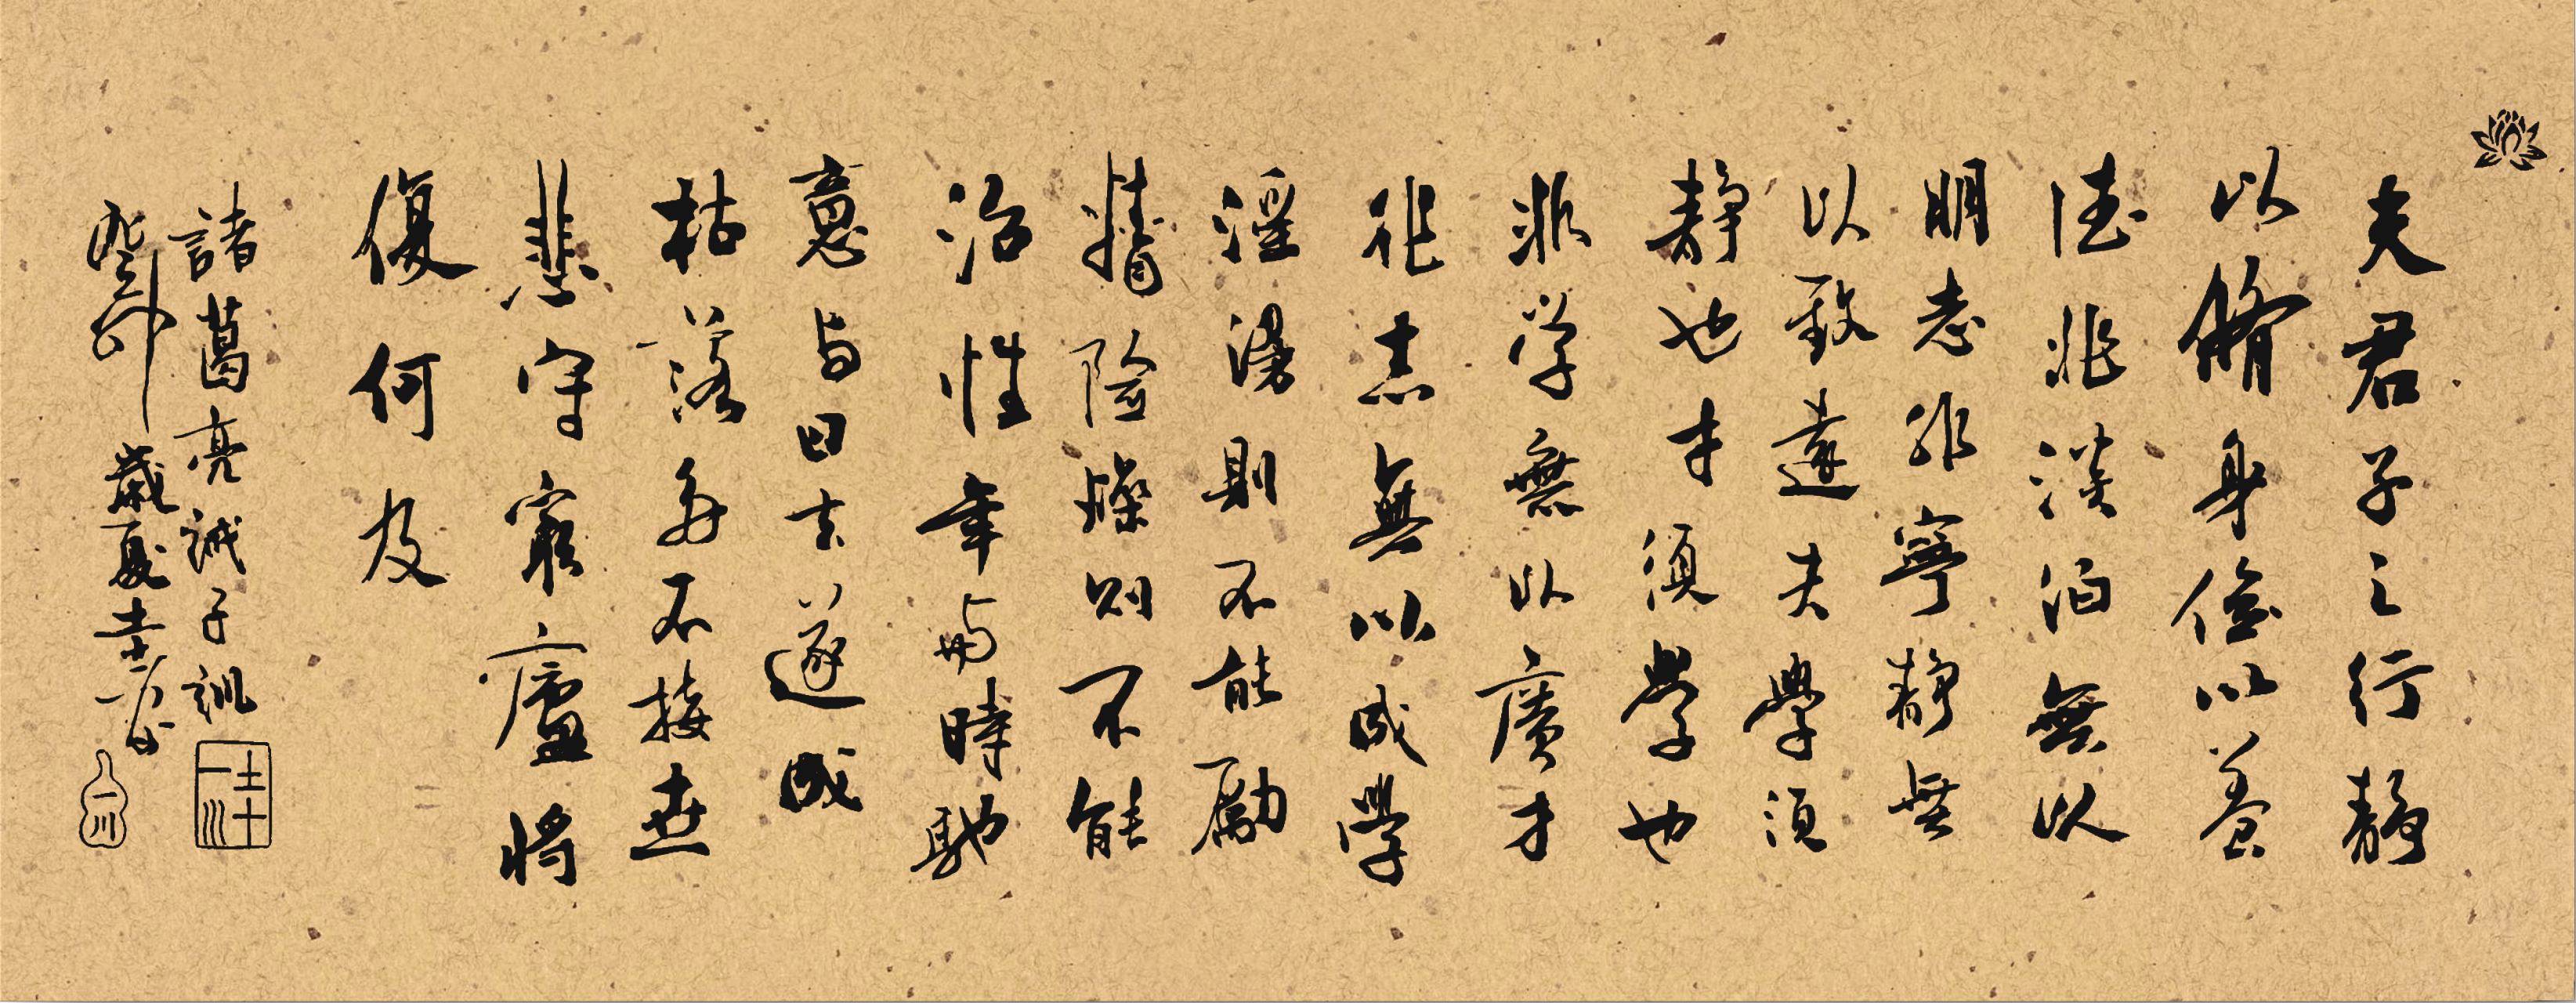 夫君子之行靜
以脩身儉以養
德非淡泊無以
明志非寧靜無
以致遠夫學須
靜也才須學也
非学無以廣才
非志無以成學
淫漫則不能勵
精險燥则不能
治性年與時馳
意与日去遂成
枯落多不接世
悲守窮廬將
復何及
諸葛亮誡子訓
圭一川
癸卯歲夏圭一书
一川